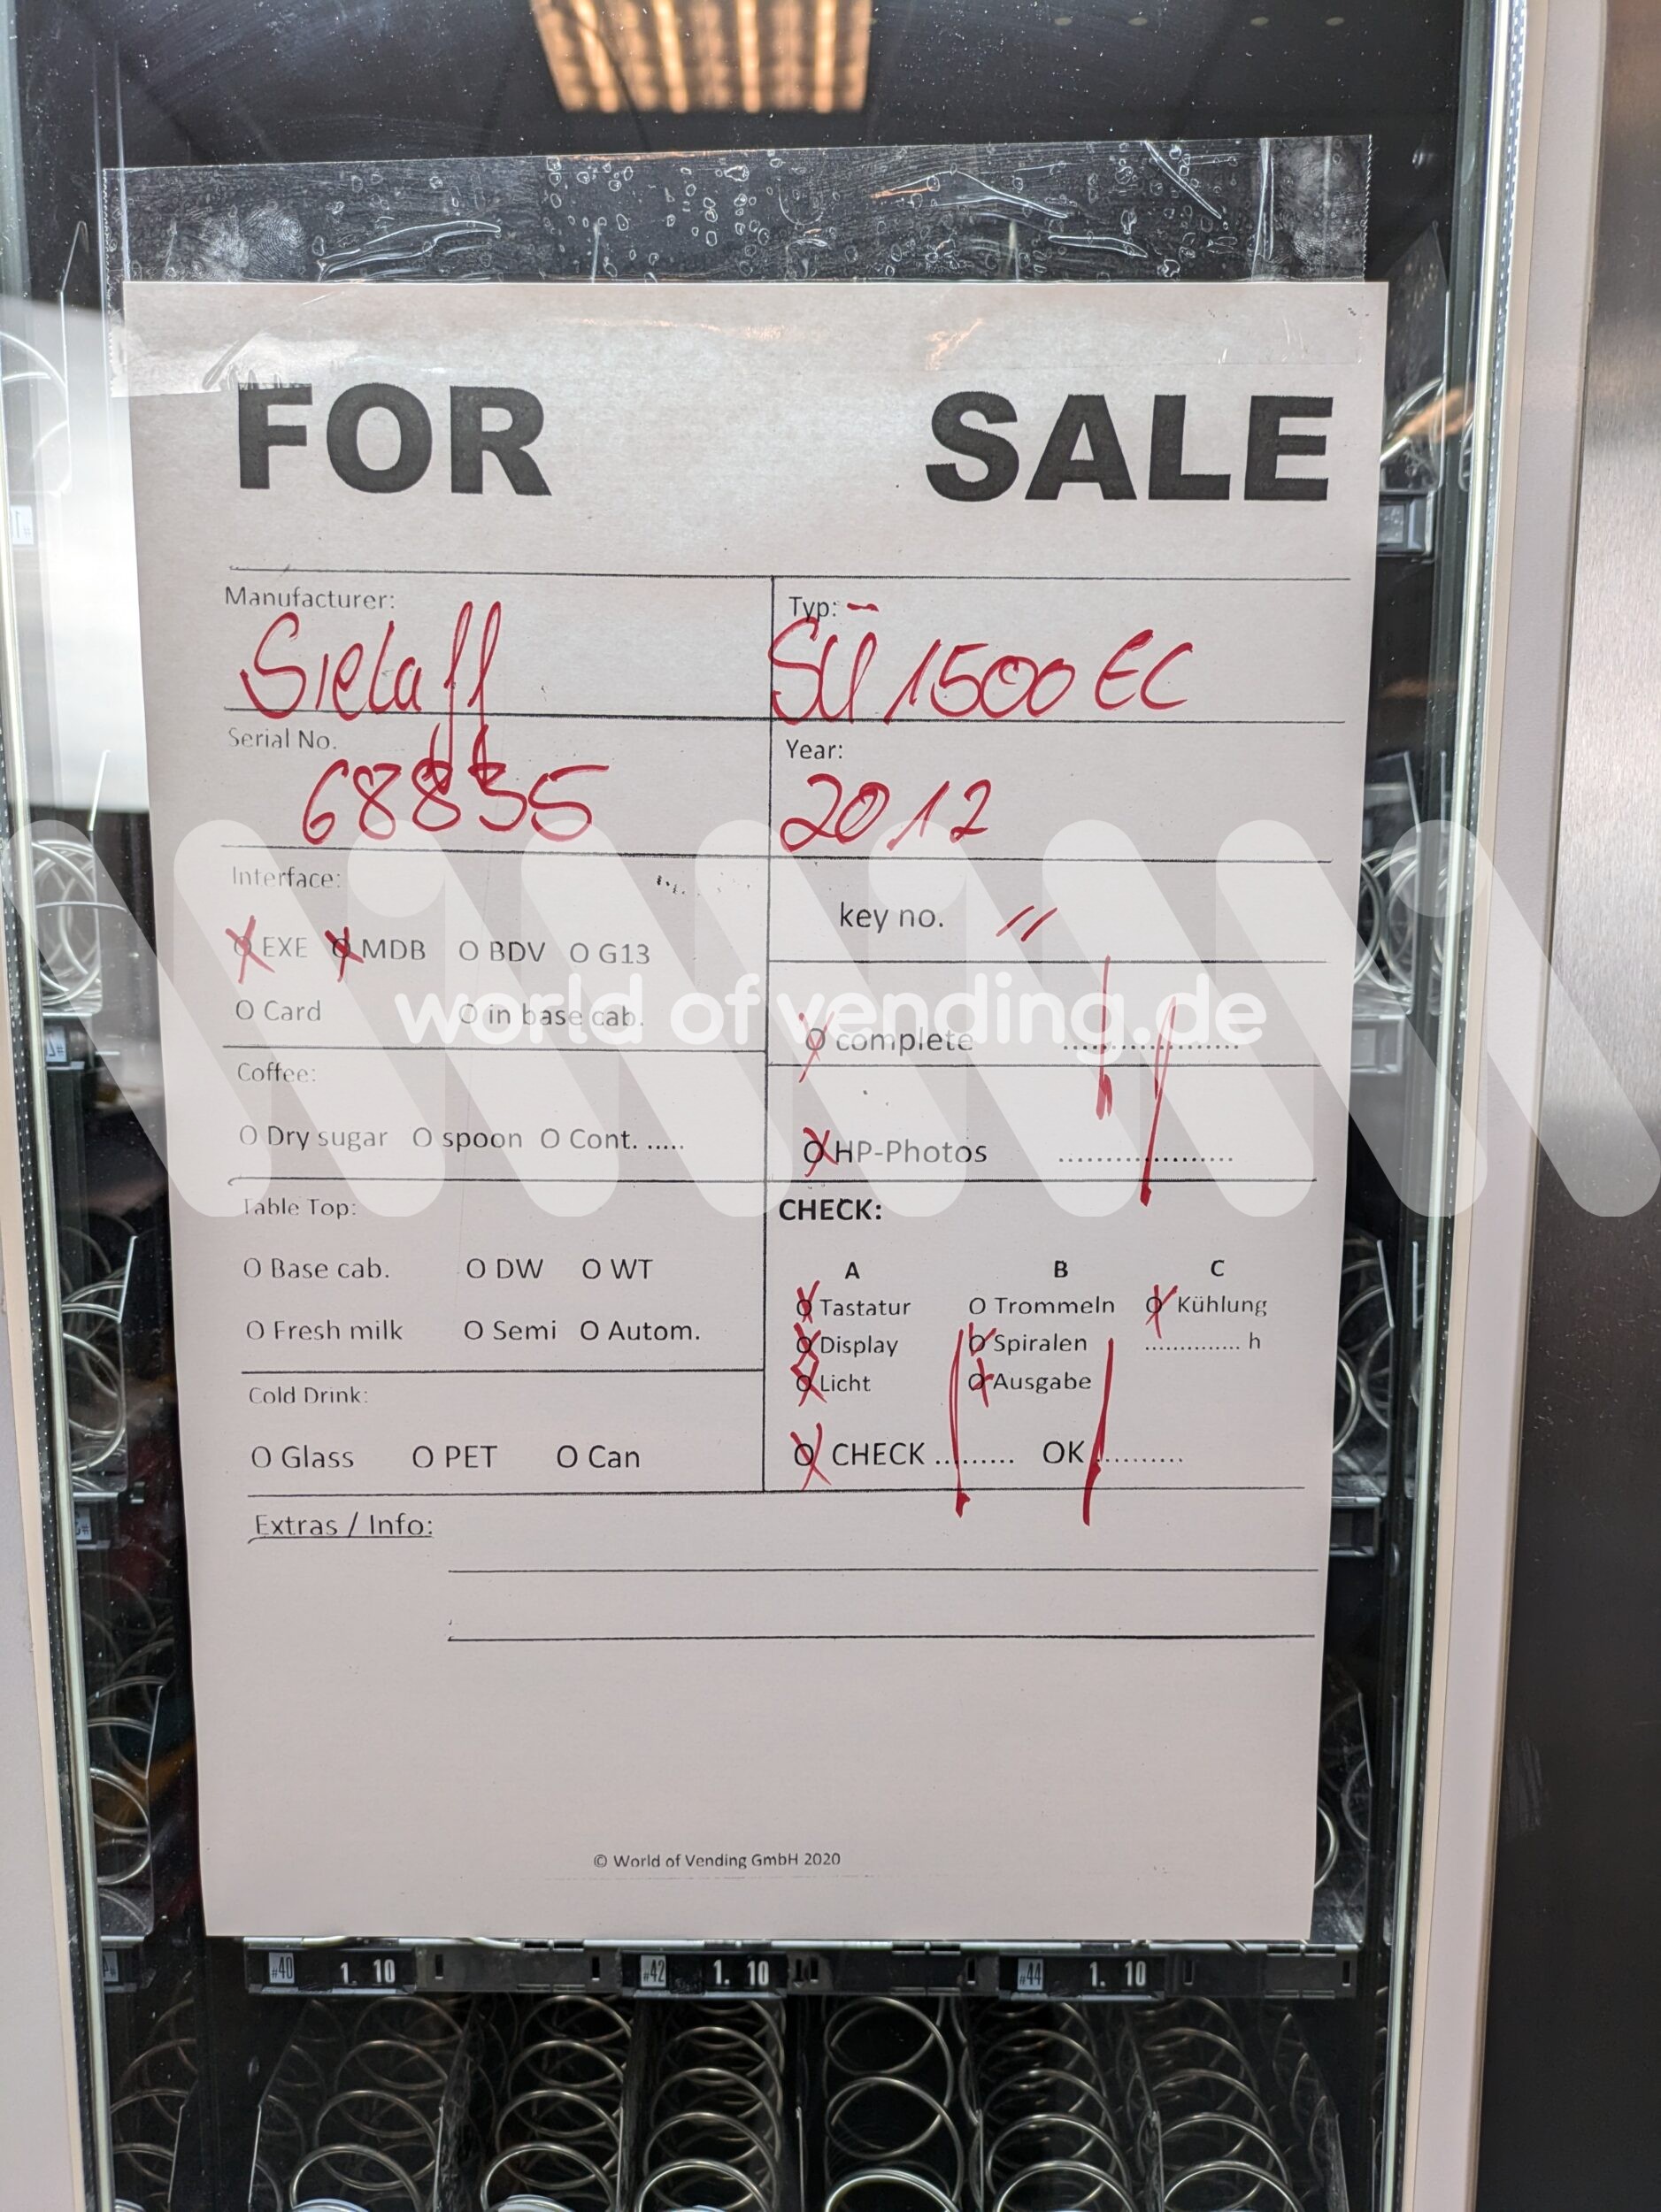 FOR SALE
Manufacturer:
Sielaff
Typ:
SÜ 1500 EC
Serial No.
68835
Year:
2012
Interface:
EXE MDB O BDV O G13
O Card O in base cab.
key no. //
complete ....................
HP-Photos ....................
world of vending.de
Coffee:
O Dry sugar O spoon O Cont. .....
Table Top:
O Base cab. O DW O WT
O Fresh milk O Semi O Autom.
Cold Drink:
O Glass O PET O Can
CHECK:
A B C
Tastatur O Trommeln Kühlung
Display Spiralen .............. h
Licht Ausgabe
CHECK ......... OK ..........
Extras / Info:
© World of Vending GmbH 2020
#40 1. 10 #42 1. 10 #44 1. 10